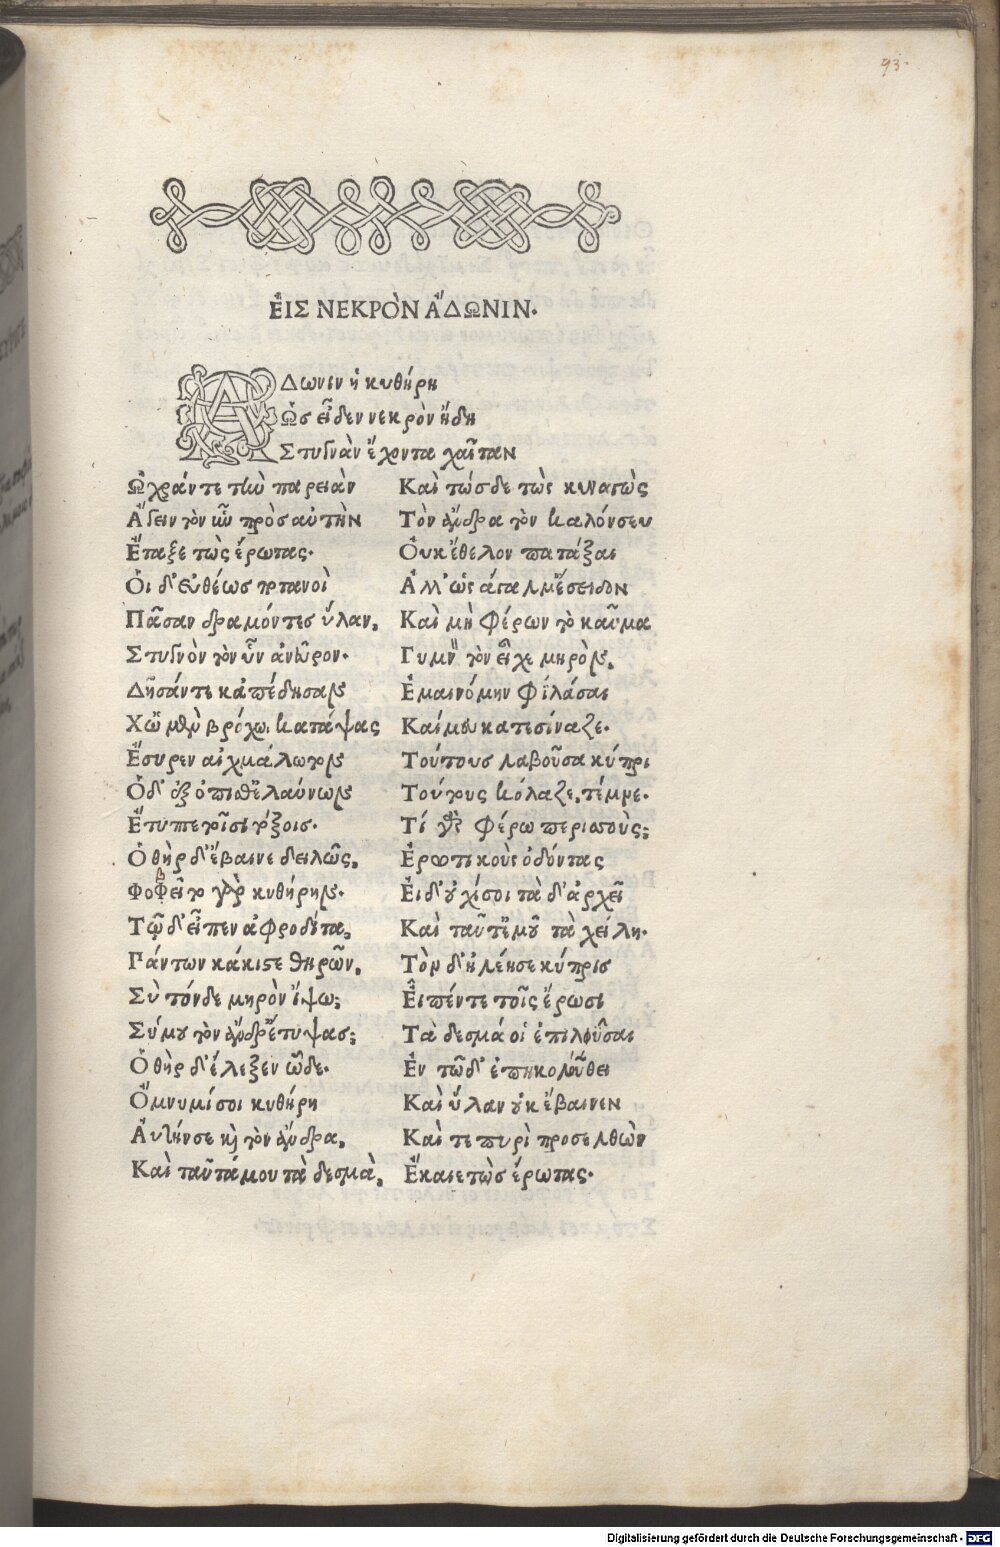 93.
ἘΙΣ ΝΕΚΡῸΝ ἌΔΩΝΙΝ.
ΑΔωνιν ἡ κυθήρη
Ὡς εἶδεν νεκρὸν ἤδη
Στυγνὰν ἔχοντα χαῖταν
Ὠχράν τε τὴν παρειὰν
Ἄγειν τὸν ὗν πρὸς αὐτὴν
Ἔταξε τὼς ἔρωτας.
Ὁι δ' εὐθέως ποτανοὶ
Πᾶσαν δραμόντες ὕλαν,
Στυγνὸν τὸν ὗν ἀνεῦρον.
Δῆσάν τε κἀπέδησαν
Χὢ μὲν βρόχω, καταψας
Ἔσυρεν αἰχμάλωτον
Ὁ δ' ἐξόπισθ' ἐλαύνων
Ἔτυπτε τοῖσι τόξοις.
Ὁ θὴρ δ' ἔβαινε δειλῶς,
Φοφεῖτο γὰρ κυθήρην.
β
Τῷ δ' εἶπεν ἀφροδίτα,
Γάντων κάκιστε θηρῶν,
Σὺ τόνδε μηρὸν ἴψω;
Σύ μου τὸν ἄνδρ' ἔτυψας;
Ὁ θὴρ δ' ἔλεξεν ὧδε.
Ὄμνυμί σοι κυθήρη
Ἀυτήν σε καὶ τὸν ἄνδρα,
Καὶ ταῦτά μου τὰ δεσμὰ,
Καὶ τώσδε τὼς κυναγὼς
Τὸν ἄνδρα τὸν καλόν σευ
Ὀυκ ἔθελον πατάξαι
Ἀλλ' ὡς ἄγαλμ' ἔσειδον
Καὶ μὴ φέρων τὸ καῦμα
Γυμνὸν τὸν εἶχε μηρὸν,
Ἐμαινόμην φιλάσαι
Καί μευ κατεσίναζε.
Τούτους λαβοῦσα κύπρι
Τούτους κόλαζε, τέμνε.
Τί γὰρ φέρω περισσοὺς;
Ἐρωτικοὺς ὀδόντας
Ἐι δ' οὐχί σοι τὰ δ' ἀρκεῖ
Καὶ ταῦτ' ἐμοῦ τὰ χείλη.
Τὸν δ' ἠλέησε κύπρις
Ἐῖπέν τε τοῖς ἔρωσι
Τὰ δεσμά οἱ ἐπιλῦσαι
Ἐν τῶδ' ἐπηκολούθει
Καὶ ὕλαν οὐκ ἔβαινεν
Καί τε πυρὶ προσελθὼν
Ἔκαιε τὼς ἔρωτας.
Digitalisierung gefördert durch die Deutsche Forschungsgemeinschaft - DFG